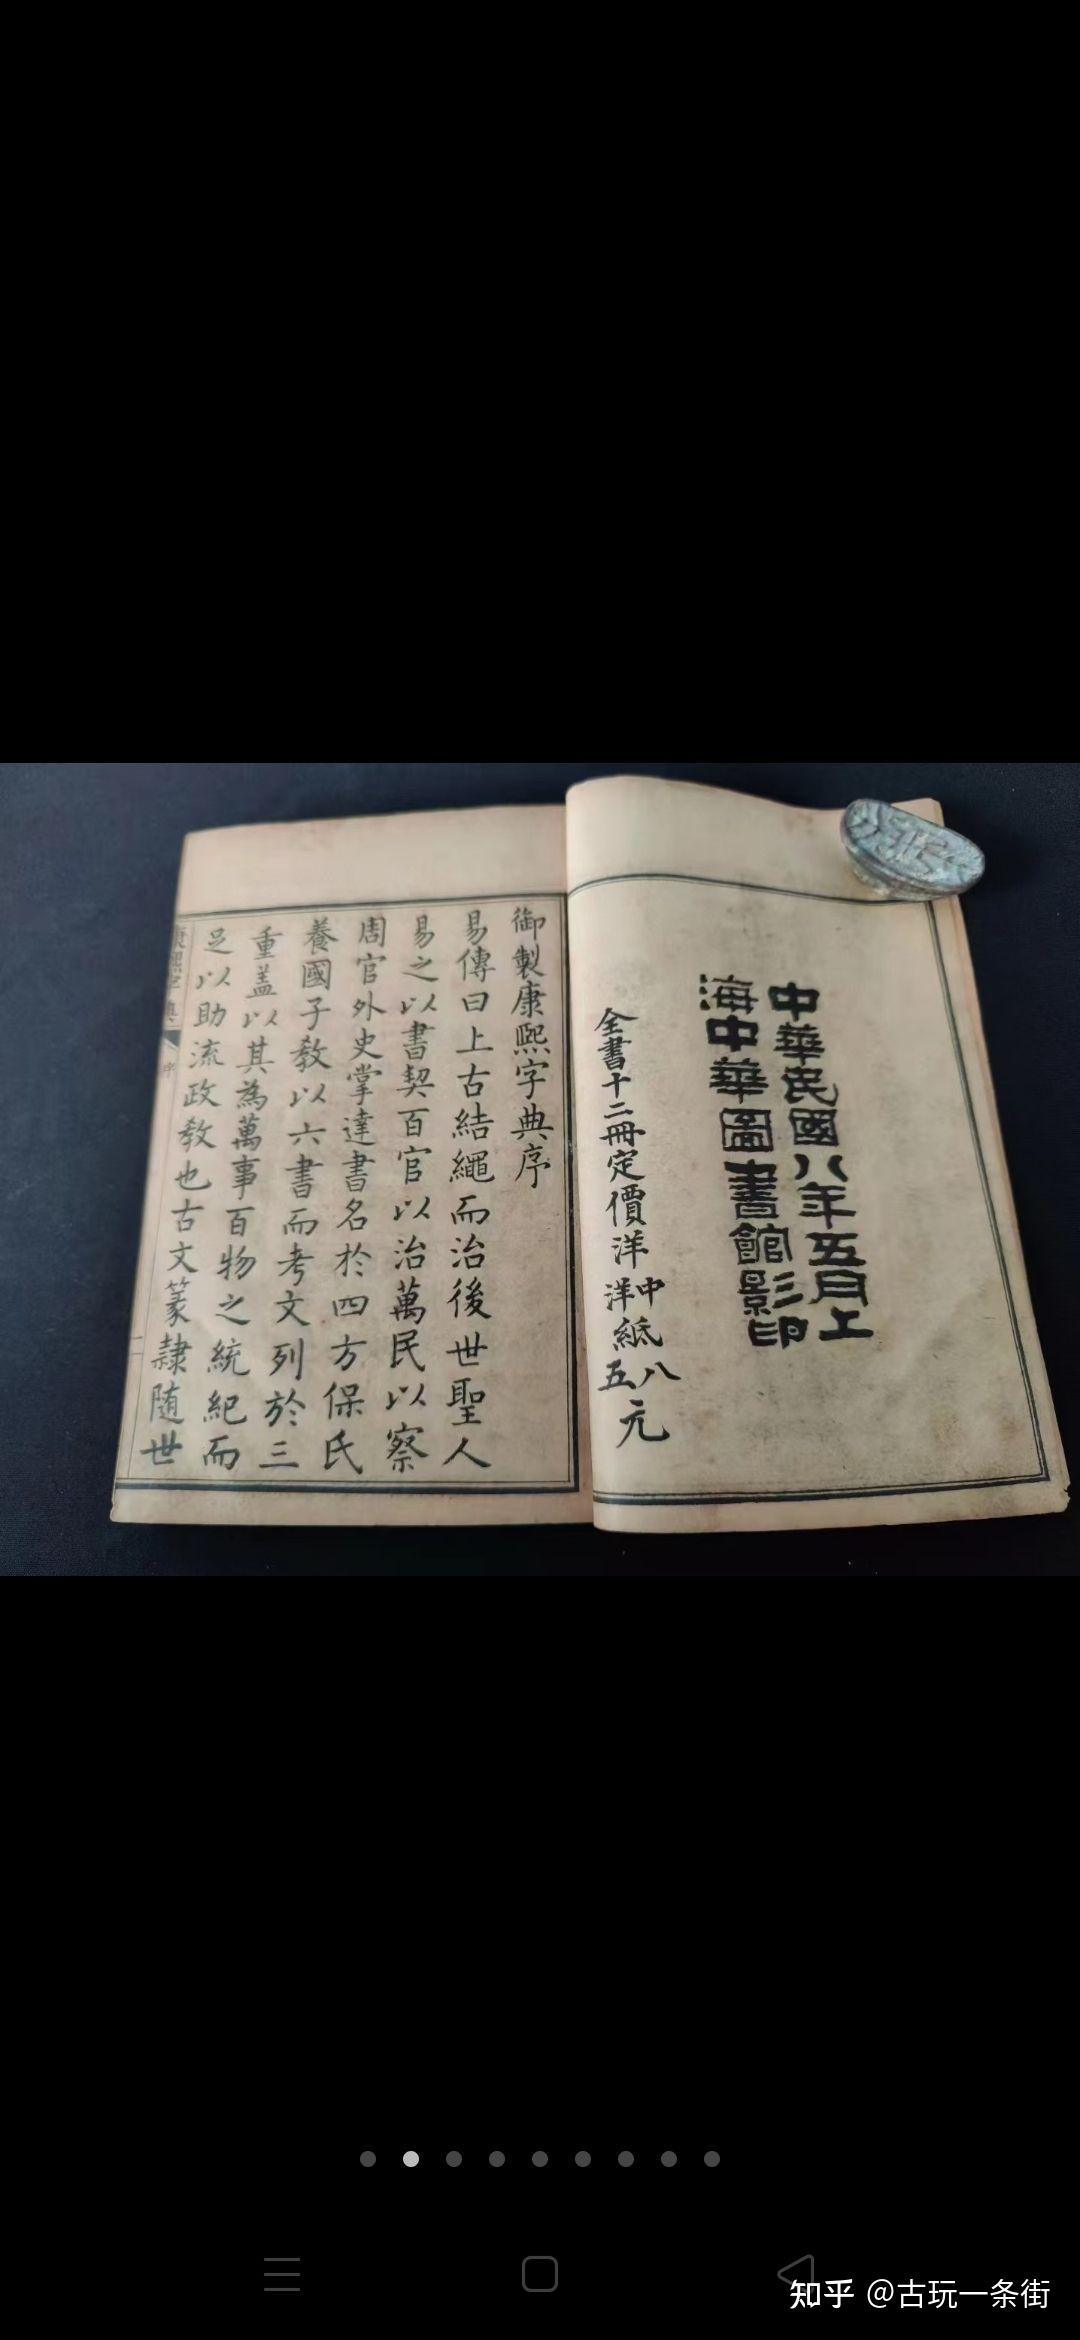 中華民國八年五月上
海中華圖書館影印
全書十二冊定價洋中洋紙八五元
御製康熙字典序
易傳曰上古結繩而治後世聖人
易之以書契百官以治萬民以察
周官外史掌達書名於四方保氏
養國子教以六書而考文列於三
重蓋以其為萬事百物之統紀而
足以助流政教也古文篆隸随世
康熙字典
序
知乎 @古玩一条街